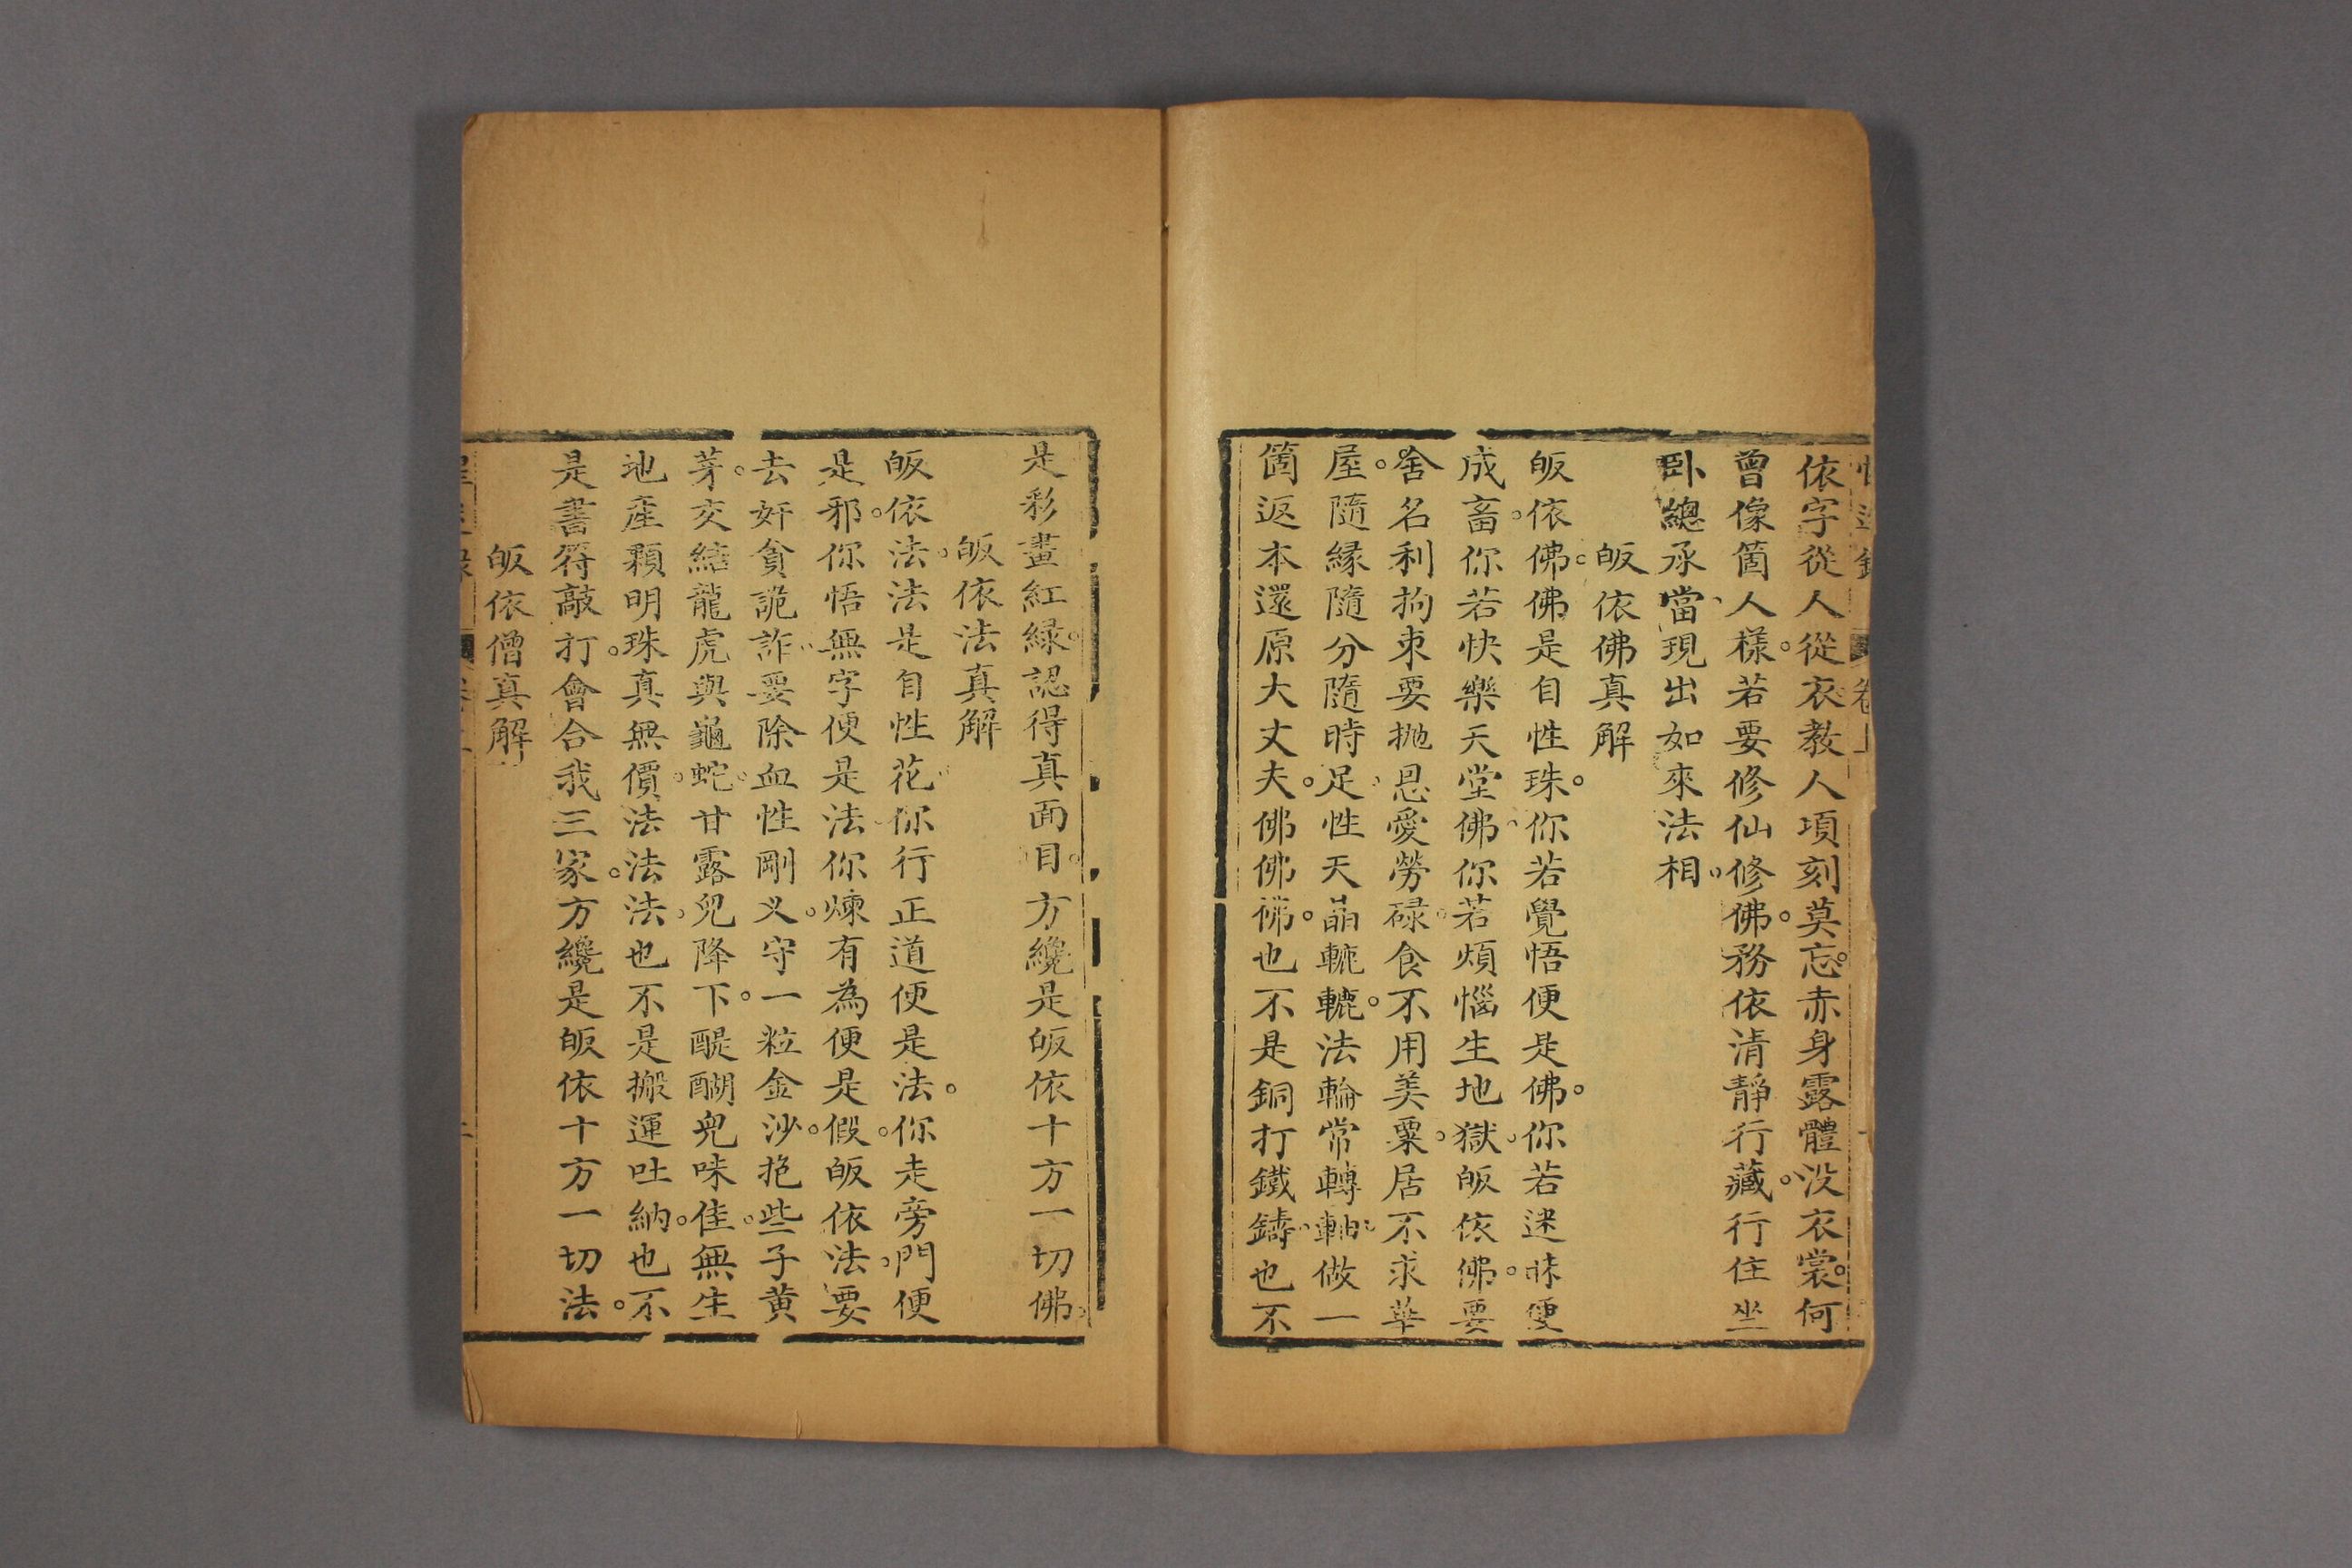 依字從人從衣教人項刻莫忘。赤身露體没衣裳。何
曾像箇人樣。若要修仙修佛。務依清靜行藏。行住坐
卧總承當、現出如來法相。
皈依佛真解
皈依佛。佛是自性珠。你若覺悟便是佛。你若迷昧便
成畜。你若快樂天堂佛、你若煩惱生地獄、皈依佛。要
舍名利拘束要拋恩愛勞碌。食不用美粟。居不求華
屋。隨緣隨分隨時足、性天晶轆轆。法輪常轉軸、做一
箇返本還原大丈夫。佛佛佛。也不是銅打鐵鑄。也不
是彩畫紅緑。認得真面目。方纔是皈依十方一切佛、
皈依法真解
皈依法。法是自性花、你行正道便是法。你走旁門便
是邪。你悟無字便是法、你煉有為便是假。皈依法、要
去奸貪詭詐、要除血性剛义。守一粒金沙。抱些子黄
芽。交結龍虎與龜蛇。甘露兒降下。醍醐兒味佳。無生
地產顆明珠真無價。法法法、也不是搬運吐納。也不
是書符敲打。會合我三家。方纔是皈依十方一切法。
皈依僧真解